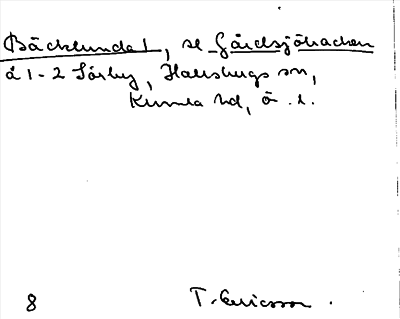 Bäcklundat, se Gårdsjöbacken
å 1-2 Sörby, Hallsbergs sn,
Kumla hd, ö. l.
8 T. Ericsson.